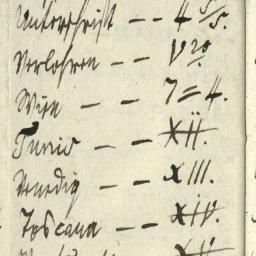 Unterschrift -- 4 5/5.
Verlohren -- V 20
Wien -- 7=4.
Tunis -- XII.
Venedig -- XIII.
Toscana -- XIV.
XV